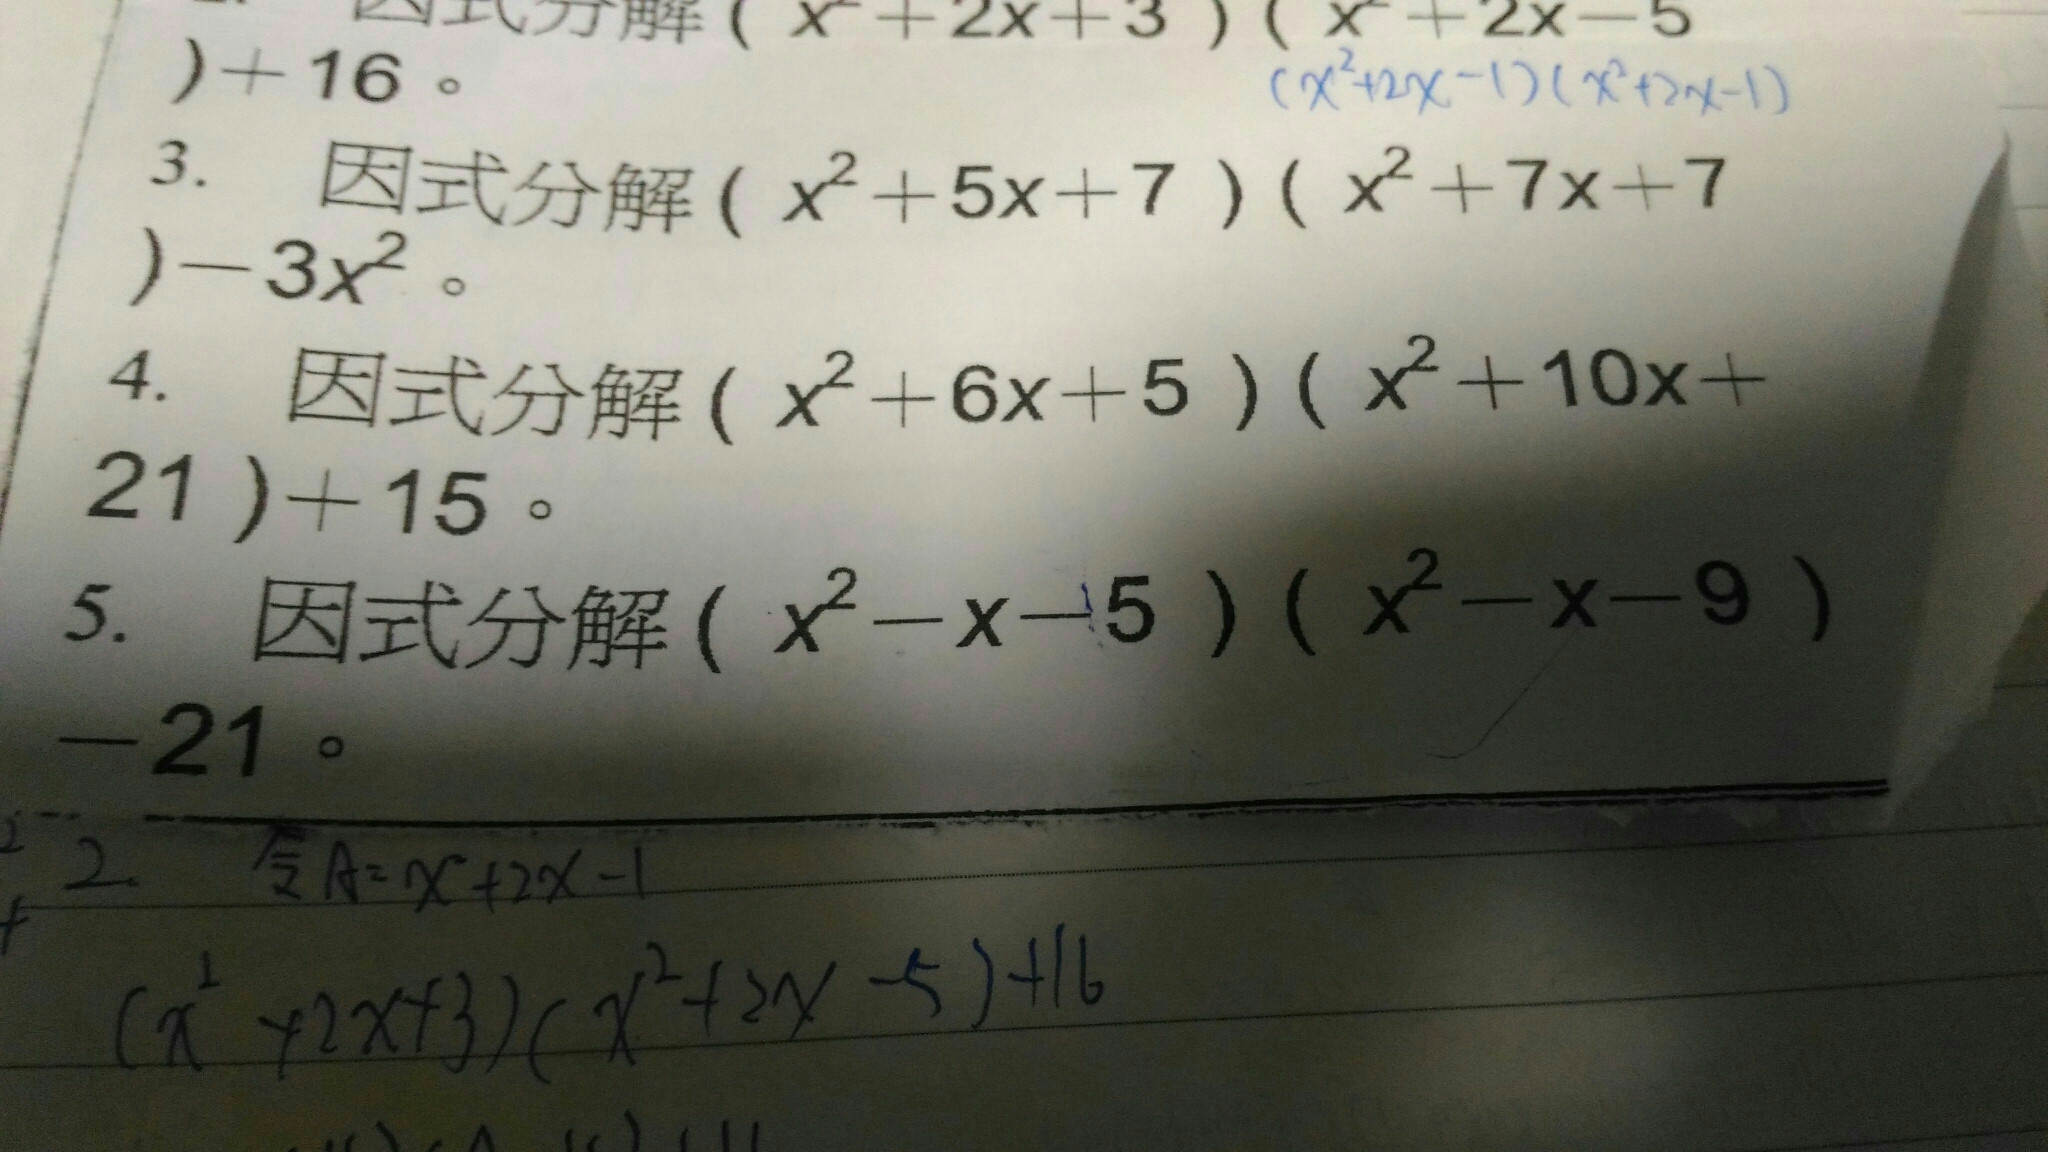 因式分解( x²+2x+3 )( x²+2x-5
)+16。
(x²+2x-1)(x²+2x-1)
3. 因式分解( x²+5x+7 )( x²+7x+7
)-3x²。
4. 因式分解( x²+6x+5 )( x²+10x+
21 )+15。
5. 因式分解( x²-x-5 )( x²-x-9 )
-21。
2. 令A=x²+2x-1
(x²+2x+3)(x²+2x-5)+16